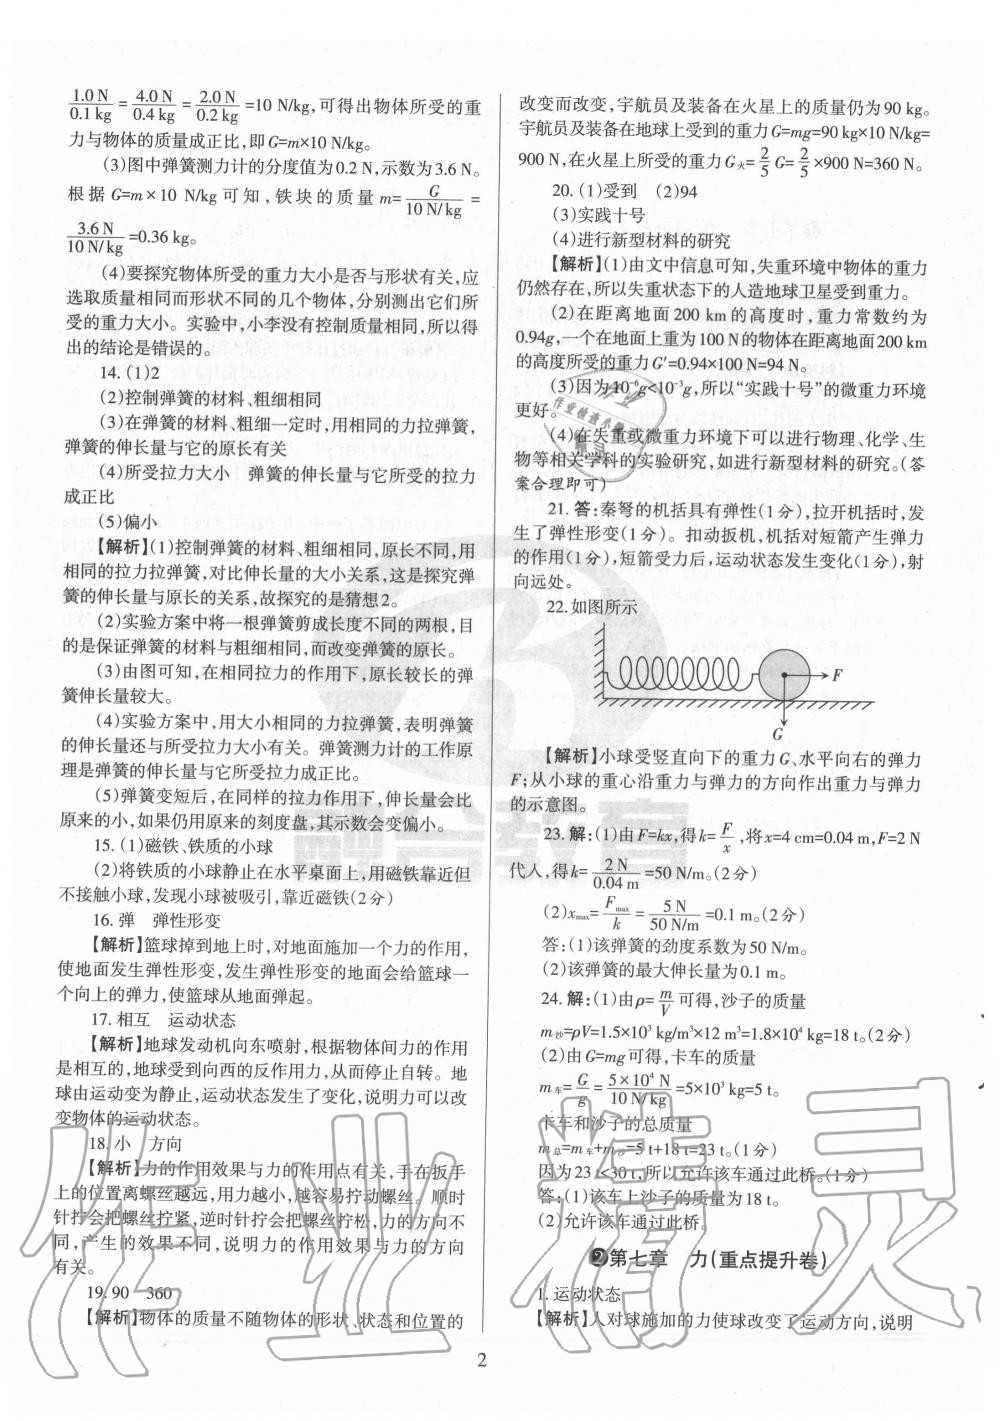 1.0 N/0.1 kg = 4.0 N/0.4 kg = 2.0 N/0.2 kg =10 N/kg,可得出物体所受的重
力与物体的质量成正比,即G=m×10 N/kg。
(3)图中弹簧测力计的分度值为0.2 N,示数为3.6 N。
根据 G=m×10 N/kg 可知,铁块的质量 m= G/10 N/kg =
3.6 N/10 N/kg =0.36 kg。
(4)要探究物体所受的重力大小是否与形状有关,应
选取质量相同而形状不同的几个物体,分别测出它们所
受的重力大小。实验中,小李没有控制质量相同,所以得
出的结论是错误的。
14.(1)2
(2)控制弹簧的材料、粗细相同
(3)在弹簧的材料、粗细一定时,用相同的力拉弹簧,
弹簧的伸长量与它的原长有关
(4)所受拉力大小 弹簧的伸长量与它所受的拉力
成正比
(5)偏小
【解析】(1)控制弹簧的材料、粗细相同,原长不同,用
相同的拉力拉弹簧,对比伸长量的大小关系,这是探究弹
簧的伸长量与原长的关系,故探究的是猜想2。
(2)实验方案中将一根弹簧剪成长度不同的两根,目
的是保证弹簧的材料与粗细相同,而改变弹簧的原长。
(3)由图可知,在相同拉力的作用下,原长较长的弹
簧伸长量较大。
(4)实验方案中,用大小相同的力拉弹簧,表明弹簧
的伸长量还与所受拉力大小有关。弹簧测力计的工作原
理是弹簧的伸长量与它所受拉力成正比。
(5)弹簧变短后,在同样的拉力作用下,伸长量会比
原来的小,如果仍用原来的刻度盘,其示数会变偏小。
15.(1)磁铁、铁质的小球
(2)将铁质的小球静止在水平桌面上,用磁铁靠近但
不接触小球,发现小球被吸引,靠近磁铁(2分)
16.弹 弹性形变
【解析】篮球掉到地上时,对地面施加一个力的作用,
使地面发生弹性形变,发生弹性形变的地面会给篮球一
个向上的弹力,使篮球从地面弹起。
17.相互 运动状态
【解析】地球发动机向东喷射,根据物体间力的作用
是相互的,地球受到向西的反作用力,从而停止自转。地
球由运动变为静止,运动状态发生了变化,说明力可以改
变物体的运动状态。
18.小 方向
【解析】力的作用效果与力的作用点有关,手在扳手
上的位置离螺丝越远,用力越小,越容易拧动螺丝。顺时
针拧会把螺丝拧紧,逆时针拧会把螺丝拧松,力的方向不
同,产生的效果不同,说明力的作用效果与力的方向
有关。
19.90 360
【解析】物体的质量不随物体的形状、状态和位置的
改变而改变,宇航员及装备在火星上的质量仍为90 kg。
宇航员及装备在地球上受到的重力G=mg=90 kg×10 N/kg=
900 N,在火星上所受的重力G火= 2/5 G= 2/5 ×900 N=360 N。
20.(1)受到 (2)94
(3)实践十号
(4)进行新型材料的研究
【解析】(1)由文中信息可知,失重环境中物体的重力
仍然存在,所以失重状态下的人造地球卫星受到重力。
(2)在距离地面200 km的高度时,重力常数约为
0.94g,一个在地面上重为100 N的物体在距离地面200 km
的高度所受的重力G′=0.94×100 N=94 N。
(3)因为10⁻⁶g<10⁻³g,所以“实践十号”的微重力环境
更好。
(4)在失重或微重力环境下可以进行物理、化学、生
物等相关学科的实验研究,如进行新型材料的研究。(答
案合理即可)
21.答:秦弩的机括具有弹性(1分),拉开机括时,发
生了弹性形变(1分)。扣动扳机,机括对短箭产生弹力
的作用(1分),短箭受力后,运动状态发生变化(1分),射
向远处。
22.如图所示
F
G
【解析】小球受竖直向下的重力G、水平向右的弹力
F;从小球的重心沿重力与弹力的方向作出重力与弹力
的示意图。
23.解:(1)由F=kx,得k= F/x ,将x=4 cm=0.04 m,F=2 N
代人,得k= 2 N/0.04 m =50 N/m。(2分)
(2)xmax= Fmax/k = 5 N/50 N/m =0.1 m。(2分)
答:(1)该弹簧的劲度系数为50 N/m。
(2)该弹簧的最大伸长量为0.1 m。
24.解:(1)由ρ= m/V 可得,沙子的质量
m沙=ρV=1.5×10³ kg/m³×12 m³=1.8×10⁴ kg=18 t。(2分)
(2)由G=mg可得,卡车的质量
m车= G/g = 5×10⁴ N/10 N/kg =5×10³ kg=5 t。
卡车和沙子的总质量
m总=m车+m沙=5 t+18 t=23 t。(1分)
因为23 t<30 t,所以允许该车通过此桥。(1分)
答:(1)该车上沙子的质量为18 t。
(2)允许该车通过此桥。
❷第七章 力(重点提升卷)
1.运动状态
【解析】人对球施加的力使球改变了运动方向,说明
2
融合教育
作业精灵